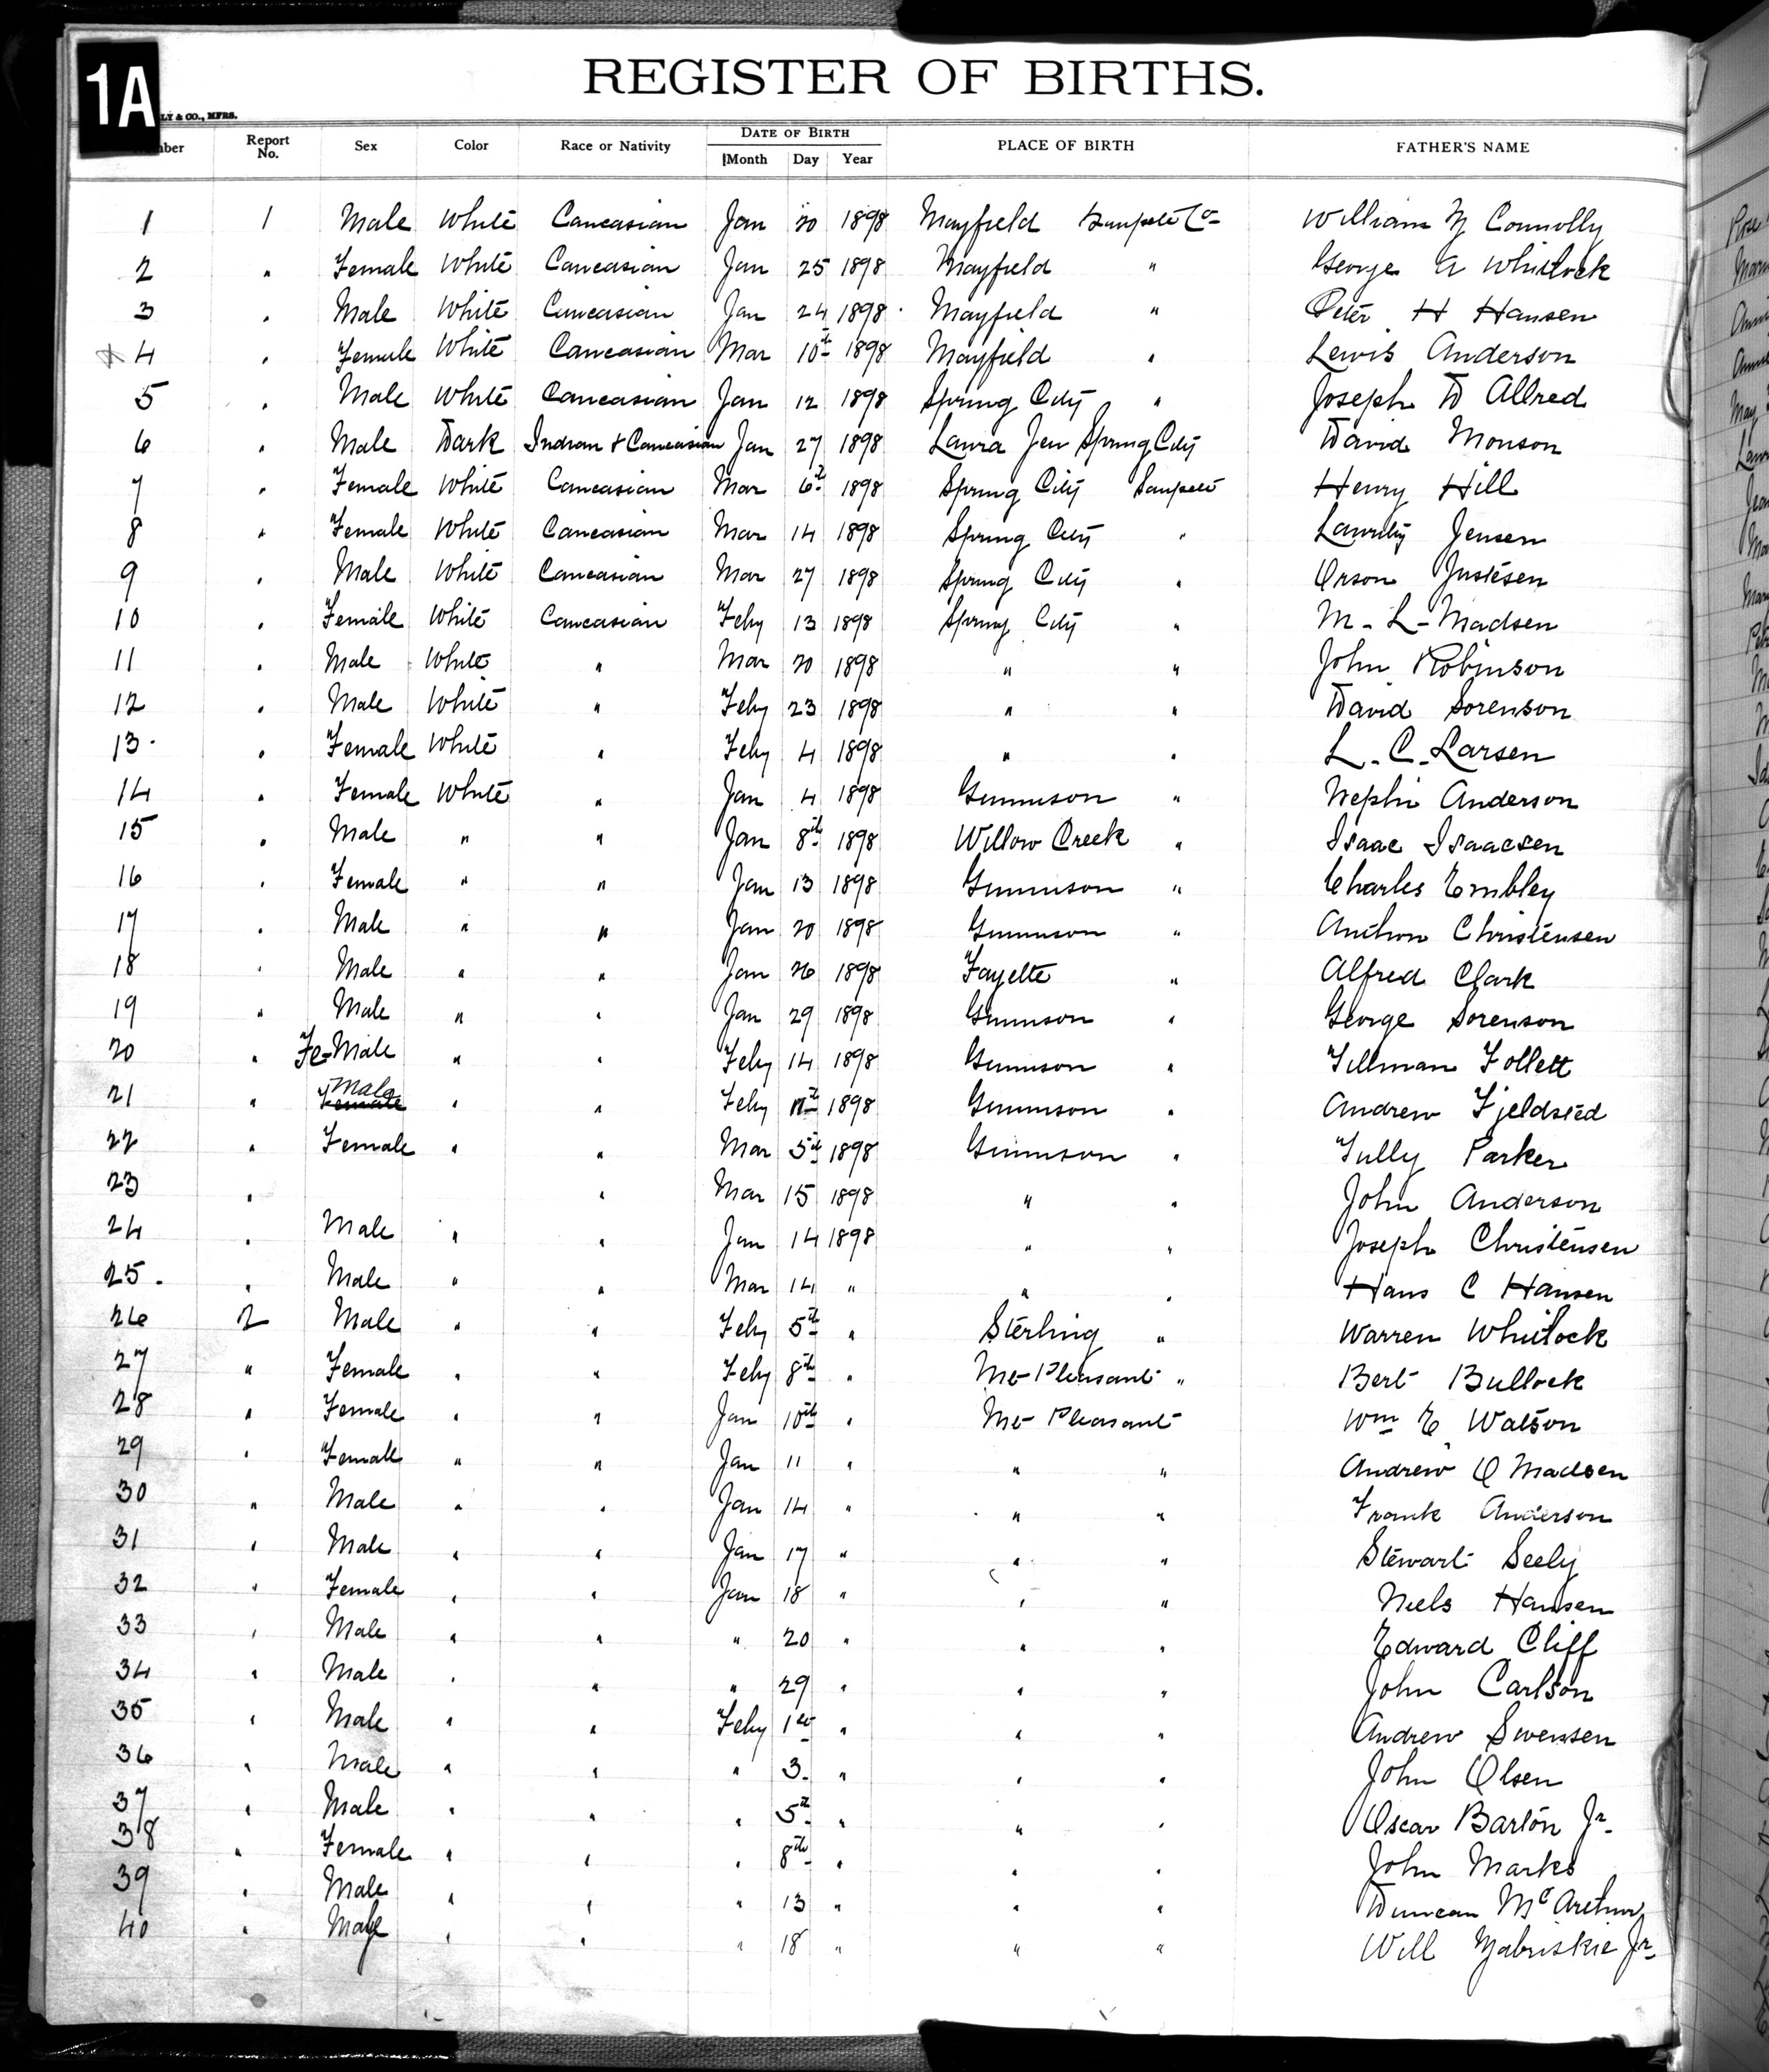 1A
REGISTER OF BIRTHS.
LY & CO., MFRS.
mber Report No. Sex Color Race or Nativity DATE OF BIRTH Month Day Year PLACE OF BIRTH FATHER'S NAME
1 1 Male White Caucasian Jan 20 1898 Mayfield Sanpete Co William Connolly
2 " Female White Caucasian Jan 25 1898 Mayfield " George A Whitlock
3 " Male White Caucasian Jan 24 1898 Mayfield " Peter H Hansen
4 " Female White Caucasian Mar 10th 1898 Mayfield " Lewis Anderson
5 " Male White Caucasian Jan 12 1898 Spring City " Joseph D Allred
6 " Male Dark Indian & Caucasian Jan 27 1898 Spring City David Monson
7 " Female White Caucasian Mar 6th 1898 Spring City Sanpete Henry Hill
8 " Female White Caucasian Mar 14 1898 Spring City " Jensen
9 " Male White Caucasian Mar 27 1898 Spring City " Orson Justesen
10 " Female White Caucasian Feby 13 1898 Spring City " M-L-Madsen
11 " Male White " Mar 20 1898 " " John Robinson
12 " Male White " Feby 23 1898 " " David Sorenson
13. " Female White " Feby 4 1898 " " L. C. Larsen
14 " Female White " Jan 4 1898 Gunnison " Nephi Anderson
15 " Male " " Jan 8th 1898 Willow Creek " Isaac Isaacsen
16 " Female " " Jan 13 1898 Gunnison " Charles Embley
17 " Male " " Jan 20 1898 Gunnison " Anthon Christensen
18 " Male " " Jan 26 1898 Fayette " Alfred Clark
19 " Male " " Jan 29 1898 Gunnison " George Sorenson
20 " Fe-Male " " Feby 14 1898 Gunnison " Tillman Follett
21 " Female Male " " Feby 1898 Gunnison " Andrew Fjeldsted
22 " Female " " Mar 5th 1898 Gunnison " Tully Parker
23 " " Mar 15 1898 " " John Anderson
24 " Male " " Jan 14 1898 " " Joseph Christensen
25. " Male " " Mar 14 " " " Hans C Hansen
26 2 Male " " Feby 5th " Sterling " Warren Whitlock
27 " Female " " Feby 8th " Mt Pleasant " Bert Bullock
28 " Female " " Jan 10th " Mt Pleasant Wm E Watson
29 " Female " " Jan 11 " " " Andrew O Madsen
30 " Male " " Jan 14 " " " Frank Anderson
31 " Male " " Jan 17 " " " Stewart Seely
32 " Female " " Jan 18 " " " Niels Hansen
33 " Male " " " 20 " " " Edward Cliff
34 " Male " " " 29 " " " John Carlson
35 " Male " " Feby 1st " " " Andrew Swensen
36 " Male " " " 3. " " " John Olsen
37 " Male " " " 5th " " " Oscar Barton Jr.
38 " Female " " " 8th " " " John Marks
39 " Male " " " 13 " " " Duncan McArthur
40 " Male " " " 18 " " " Will Zabriskie Jr.